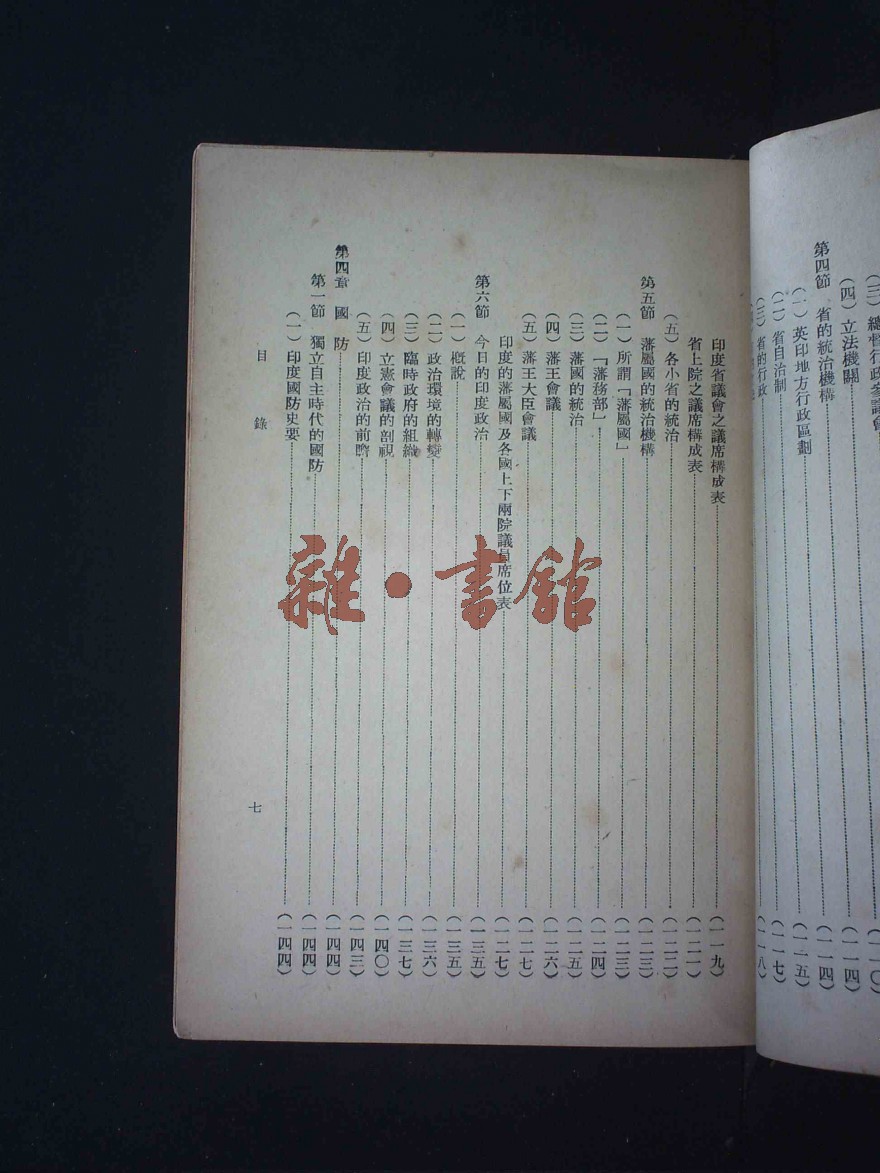 (三)總督行政參議會………(一一〇)
(四)立法機關………(一一四)
第四節 省的統治機構………(一一四)
(一)英印地方行政區劃………(一一五)
(二)省自治制………(一一七)
(三)省的行政………(一一八)
印度省議會之議席構成表………(一一九)
省上院之議席構成表………(一二一)
(五)各小省的統治………(一二二)
第五節 藩屬國的統治機構………(一二三)
(一)所謂「藩屬國」………(一二三)
(二)「藩務部」………(一二四)
(三)藩國的統治………(一二五)
(四)藩王會議………(一二六)
(五)藩王大臣會議………(一二七)
印度的藩屬國及各國上下兩院議員席位表………(一二七)
第六節 今日的印度政治………(一三五)
(一)概說………(一三五)
(二)政治環境的轉變………(一三六)
(三)臨時政府的組織………(一三七)
(四)立憲會議的剖視………(一四〇)
(五)印度政治的前瞻………(一四三)
第四章 國防………(一四四)
第一節 獨立自主時代的國防………(一四四)
(一)印度國防史要………(一四四)
目錄
七
雜·書館